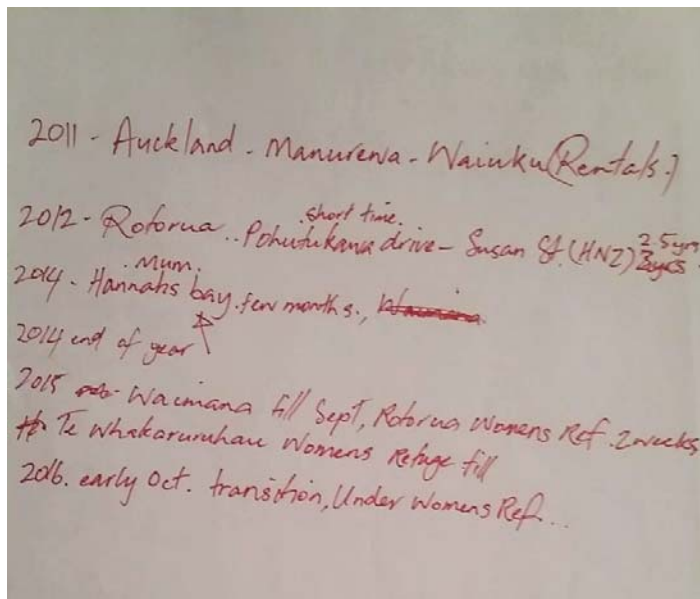 2011 - Auckland - Manurewa - Waiuku (Rentals.)
short time.
2012 - Rotorua .. Pohutukawa drive - Susan St. (HNZ) 2.5yrs
Mum.
2014 - Hannahs bay. few months.,
2014 end of year
2015 - Waimana till Sept, Rotorua Womens Ref. 2 weeks
Te Whakaruruhau Womens Refuge till
2016. early Oct. transition, Under Womens Ref...